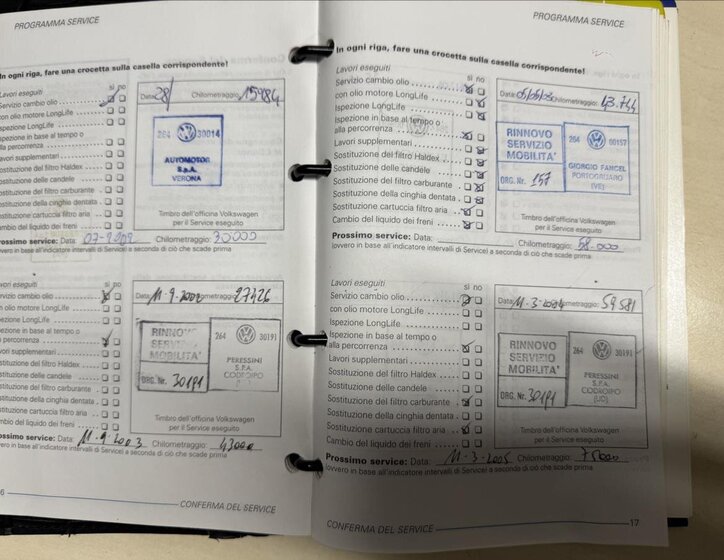 PROGRAMMA SERVICE
In ogni riga, fare una crocetta sulla casella corrispondente!
Lavori eseguiti
si no
Servizio cambio olio
con olio motore LongLife
Ispezione LongLife
Ispezione in base al tempo o
alla percorrenza
Lavori supplementari
Sostituzione del filtro Haldex
Sostituzione delle candele
Sostituzione del filtro carburante
Sostituzione della cinghia dentata
Sostituzione cartuccia filtro aria
Cambio del liquido dei freni
Data: 28/ Chilometraggio: 15984
264 30014
AUTOMOTOR
S.p.A.
VERONA
Timbro dell'officina Volkswagen
per il Service eseguito
Prossimo service: Data: 07-2002 Chilometraggio: 30000
(ovvero in base all'indicatore intervalli di Service) a seconda di ciò che scade prima
Lavori eseguiti
si no
Servizio cambio olio
con olio motore LongLife
Ispezione LongLife
Ispezione in base al tempo o
alla percorrenza
Lavori supplementari
Sostituzione del filtro Haldex
Sostituzione delle candele
Sostituzione del filtro carburante
Sostituzione della cinghia dentata
Sostituzione cartuccia filtro aria
Cambio del liquido dei freni
Data: 11-9-2002 Chilometraggio: 27426
RINNOVO
SERVIZIO
MOBILITA'
ORG. Nr. 30191
264 30191
PERESSINI
S.P.A.
CODROIPO
Timbro dell'officina Volkswagen
per il Service eseguito
Prossimo service: Data: 11-9-2003 Chilometraggio: 43000
(ovvero in base all'indicatore intervalli di Service) a seconda di ciò che scade prima
6
CONFERMA DEL SERVICE
PROGRAMMA SERVICE
In ogni riga, fare una crocetta sulla casella corrispondente!
Lavori eseguiti
si no
Servizio cambio olio
con olio motore LongLife
Ispezione LongLife
Ispezione in base al tempo o
alla percorrenza
Lavori supplementari
Sostituzione del filtro Haldex
Sostituzione delle candele
Sostituzione del filtro carburante
Sostituzione della cinghia dentata
Sostituzione cartuccia filtro aria
Cambio del liquido dei freni
Data: Chilometraggio: 43.744
RINNOVO
SERVIZIO
MOBILITA'
ORG. Nr. 157
264 00157
GIORGIO FANCEL
PORTOGRUARO
(VE)
Timbro dell'officina Volkswagen
per il Service eseguito
Prossimo service: Data: Chilometraggio: 58.000
(ovvero in base all'indicatore intervalli di Service) a seconda di ciò che scade prima
Lavori eseguiti
si no
Servizio cambio olio
con olio motore LongLife
Ispezione LongLife
Ispezione in base al tempo o
alla percorrenza
Lavori supplementari
Sostituzione del filtro Haldex
Sostituzione delle candele
Sostituzione del filtro carburante
Sostituzione della cinghia dentata
Sostituzione cartuccia filtro aria
Cambio del liquido dei freni
Data: 11-3-2004 Chilometraggio: 59581
RINNOVO
SERVIZIO
MOBILITA'
ORG. Nr. 30191
264 30191
PERESSINI
S.P.A.
CODROIPO
(UD)
Timbro dell'officina Volkswagen
per il Service eseguito
Prossimo service: Data: 11-3-2005 Chilometraggio: 75000
(ovvero in base all'indicatore intervalli di Service) a seconda di ciò che scade prima
CONFERMA DEL SERVICE
17